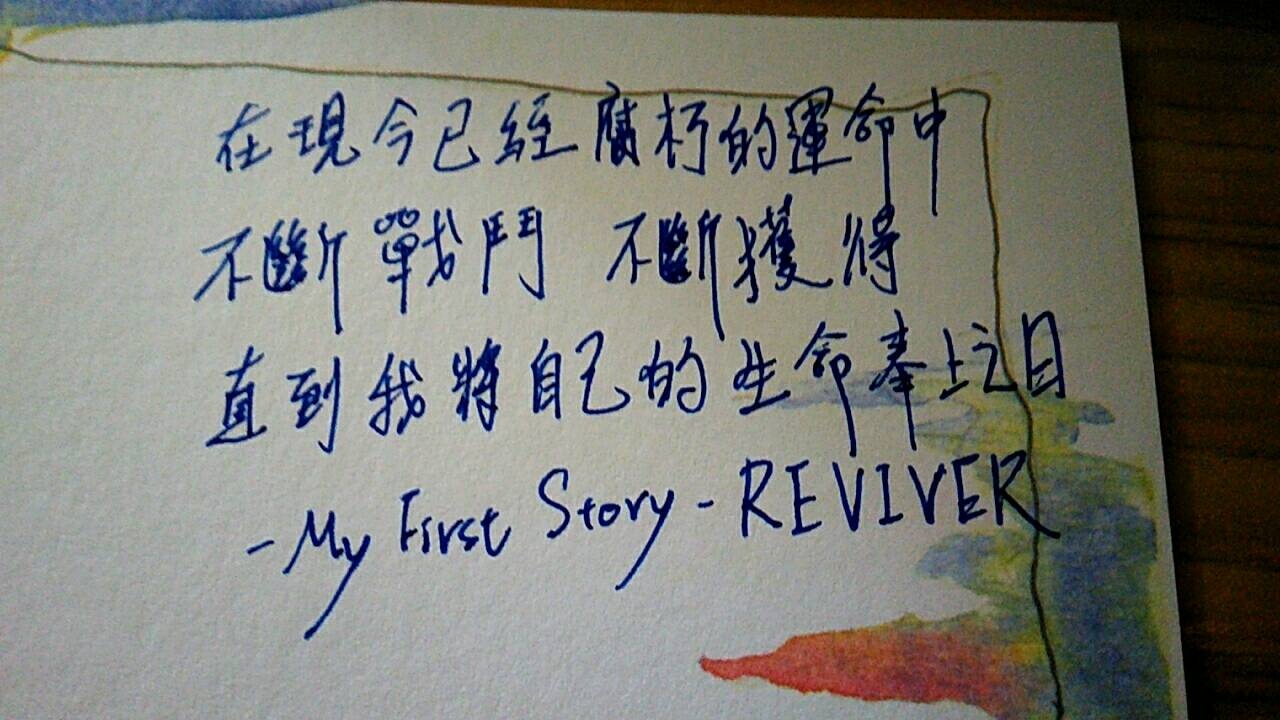 在現今已經腐朽的運命中
不斷戰鬥 不斷獲得
直到我將自己的生命奉上之日
-My First Story - REVIVER